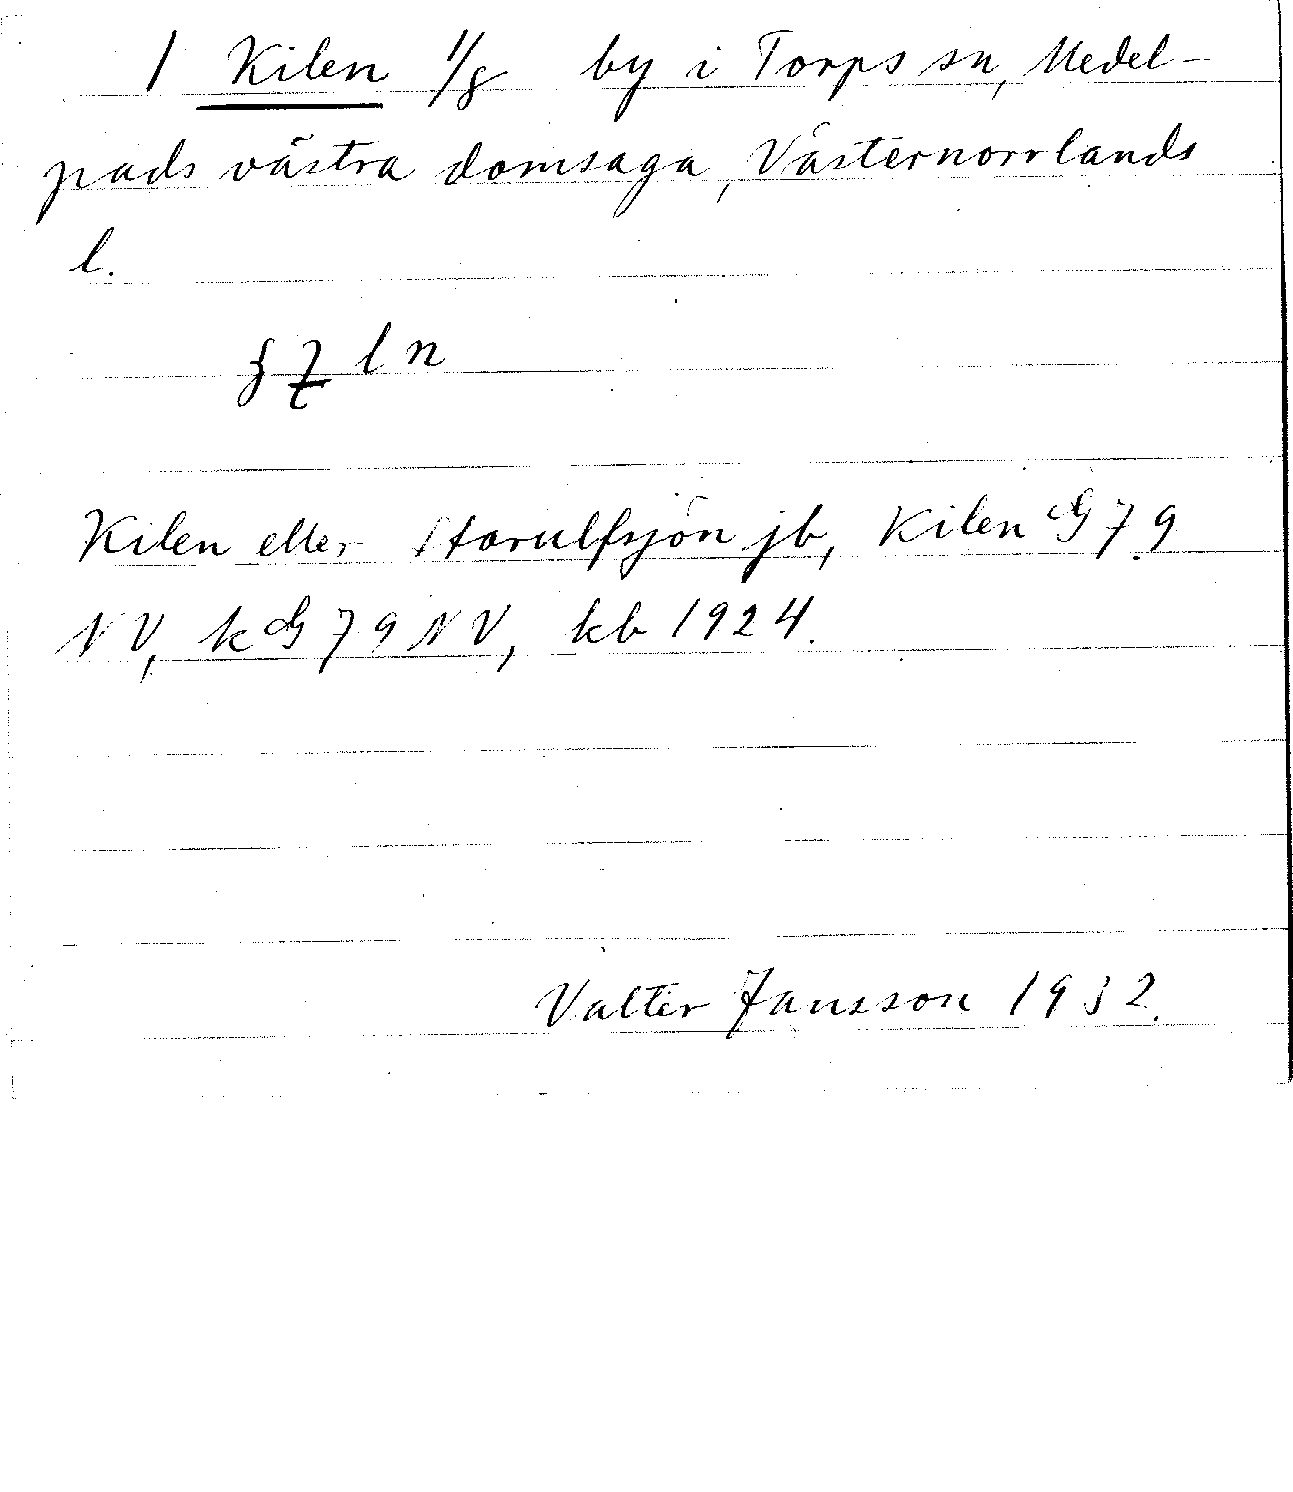 / Kilen 1/8 by i Torps sn, Medel-
pads västra domsaga, Västernorrlands
l.
l n
Kilen eller Storulfsjön jb, Kilen G 79
NV, k G 79 NV, kb 1924.
Valter Jansson 1932.